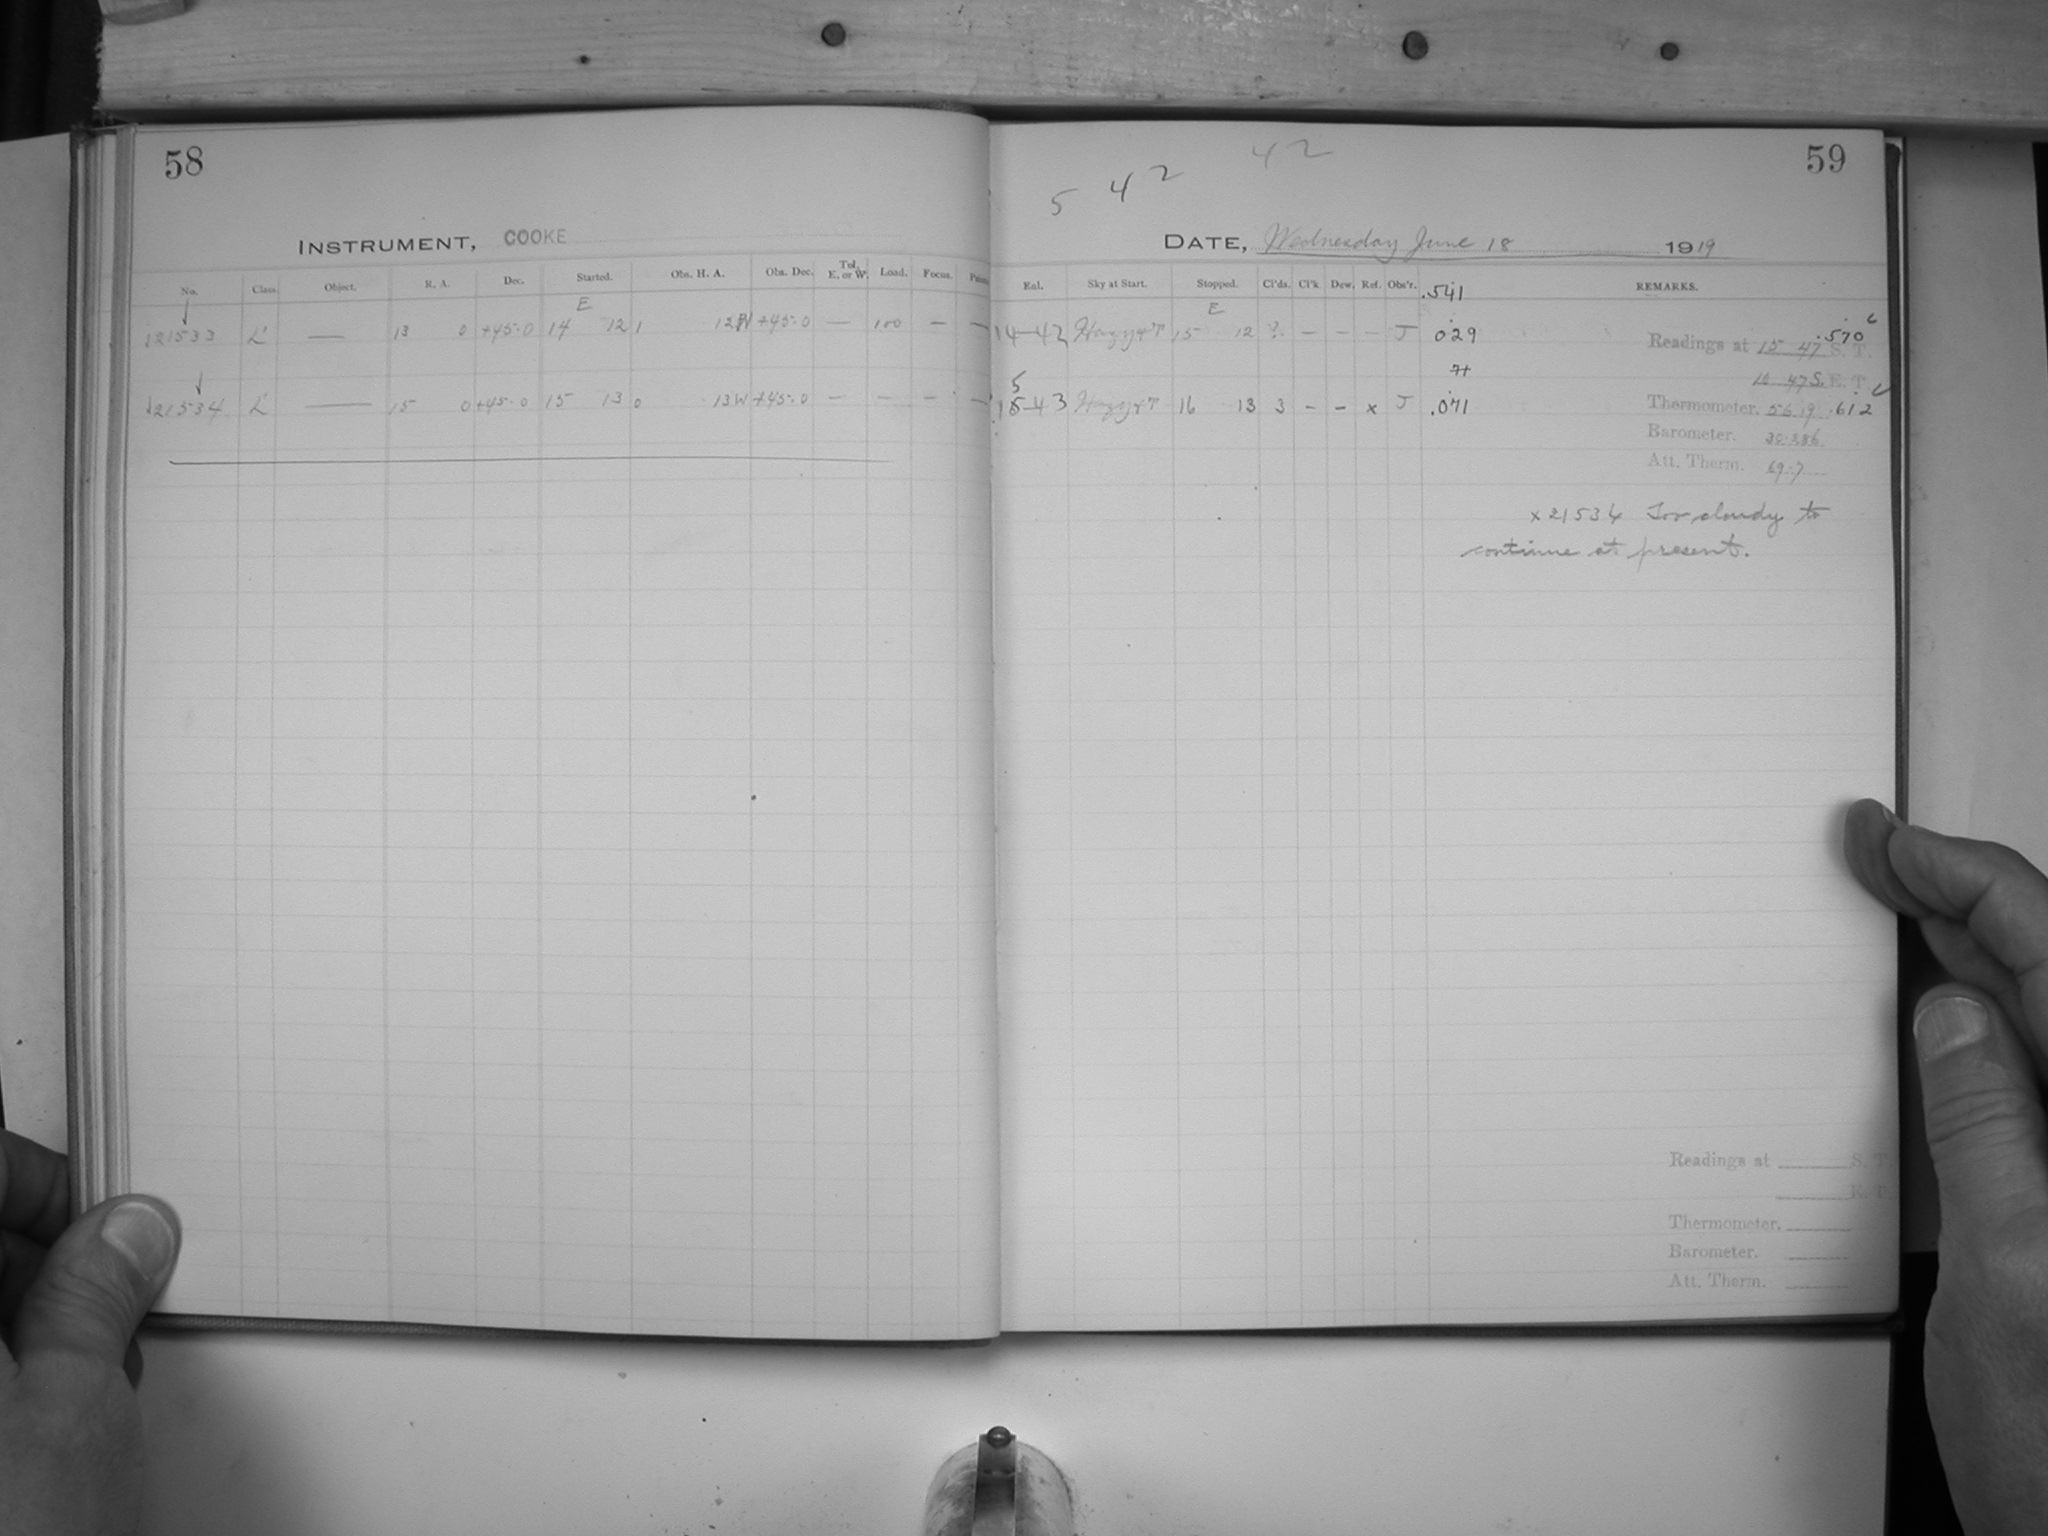 58
INSTRUMENT, COOKE
No. Class Object. R. A. Dec. Started. Obs. H. A. Obs. Dec. Tel. E. or W. Load. Focus.
E
21533 L' — 13 0 +45.0 14 12 1 12 W +45.0 — 100 — —
21534 L' — 15 0 +45.0 15 13 0 13 W +45.0 — — — —
59
42
5 4 2
DATE, Wednesday June 18 1919
Sky at Start. Stopped. Cl'ds. Cl'k Dew. Ref. Obs'r. .541 REMARKS.
E
14-42 15 12 ? — — — J 029
Readings at 15 47 S. T. .570
10 47 S. E. T.
5
15-43 16 13 3 — — x J .071
Thermometer. .612
Barometer.
Att. Therm. 69.7
x 21534 Too cloudy to
continue at present.
Readings at S. T.
E. T.
Thermometer.
Barometer.
Att. Therm.